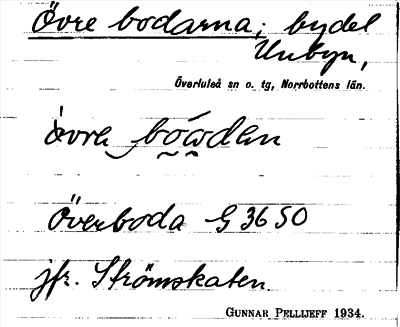 Övre bodarna; bydel
Unbyn,
Överluleå sn o. tg, Norrbottens län.
òvre bówdan
Överboda G 36 SO
jfr. Strömskaten.
GUNNAR PELLIJEFF 1934.